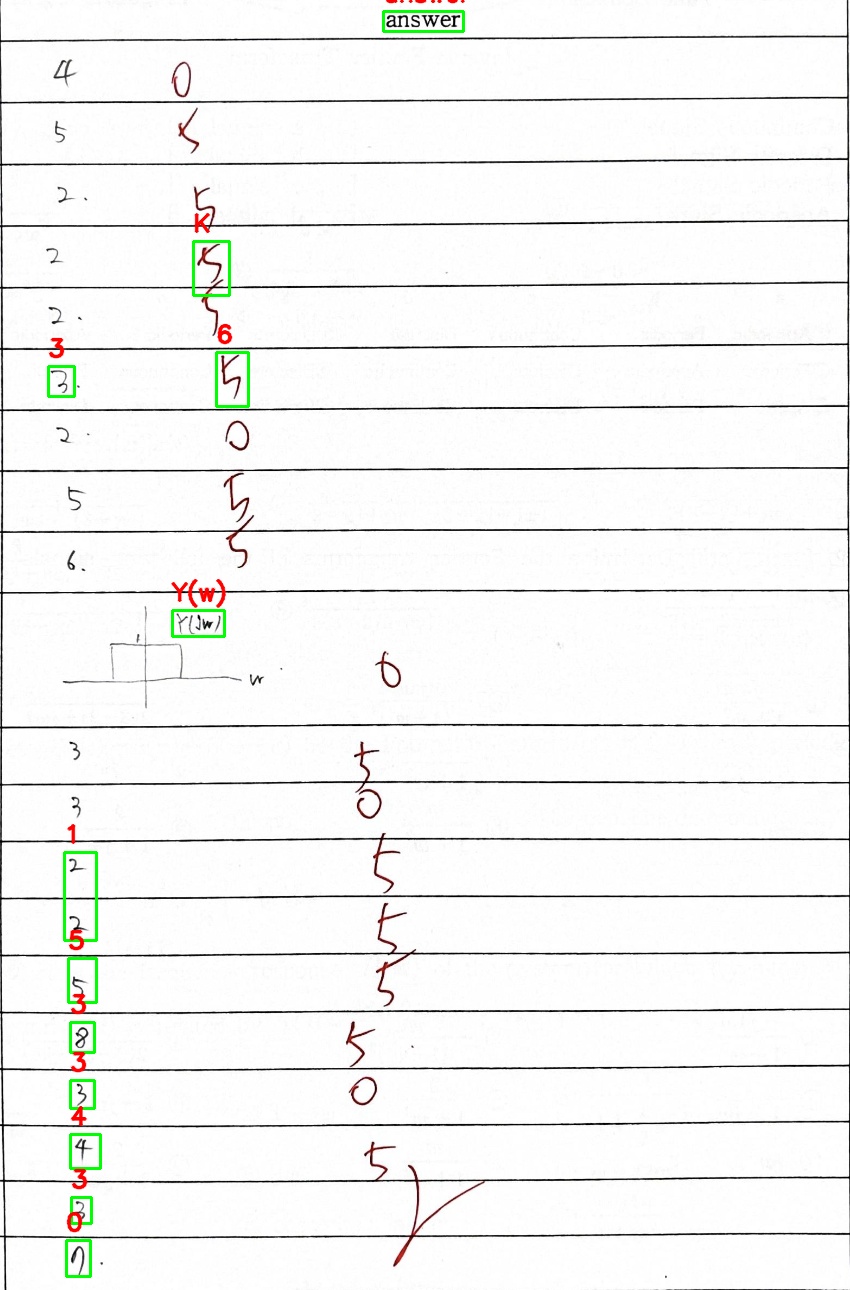 answer
answer
4 0
5 5
2. 5
K
2 5
2. 5
3 6
3. 5
2. 0
5 5
6. 5
Y(w)
Y(jw)
1
w 0
3 5
3 0
1
2 5
2 5
5
5 5
3
8 5
3
3 0
4
4 5
3
3
0
7.